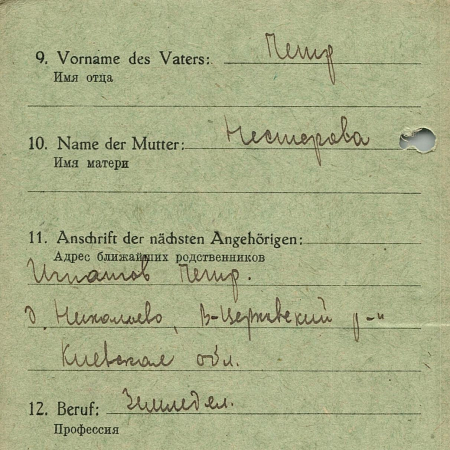 9. Vorname des Vaters: Петр
Имя отца
10. Name der Mutter: Нестерова
Имя матери
11. Anschrift der nächsten Angehörigen:
Адрес ближайших родственников
Игнатов Петр.
д. Николаево, В-Церковский р-н
Киевская обл.
12. Beruf: Земледел.
Профессия